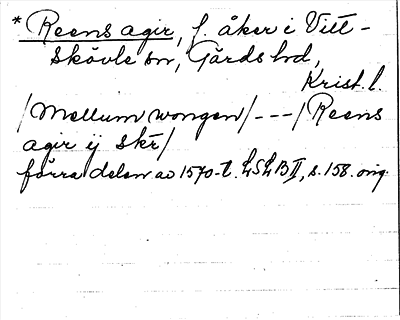 * Reens agir, f. åker i Vitt-
skövle sn, Gärds hd,
Krist. l.
/Mellum wongen/ - - - /Reens
agir ij skr̄/
förra delen av 1570-t. LSLB II, s. 158. orig.